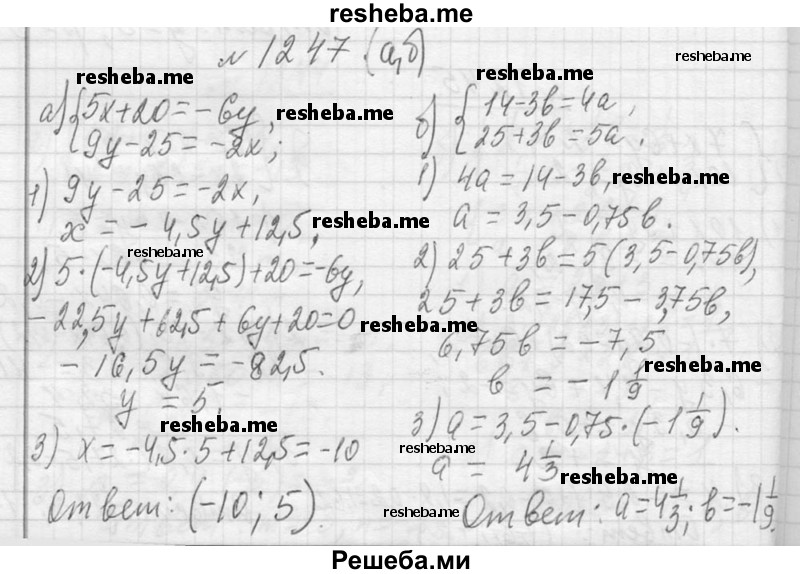 resheba.me
№ 1247 (а,б)
resheba.me
resheba.me
resheba.me
а) { 5x+20=-6y,
9y-25=-2x;
resheba.me
1) 9y-25=-2x,
x=-4,5y+12,5,
resheba.me
resheba.me
2) 5·(-4,5y+12,5)+20=-6y,
-22,5y+62,5+6y+20=0
resheba.me
-16,5y=-82,5.
y=5.
resheba.me
3) x=-4,5·5+12,5=-10
Ответ: (-10; 5).
б) { 14-3b=4a,
25+3b=5a.
1) 4a=14-3b,
resheba.me
a=3,5-0,75b.
2) 25+3b=5(3,5-0,75b),
25+3b=17,5-3,75b,
6,75b=-7,5
resheba.me
b=-1 1/9
3) a=3,5-0,75·(-1 1/9).
resheba.me
a=4 1/3
resheba.me
resheba.me
Ответ: a=4 1/3; b=-1 1/9.
Решеба.ми